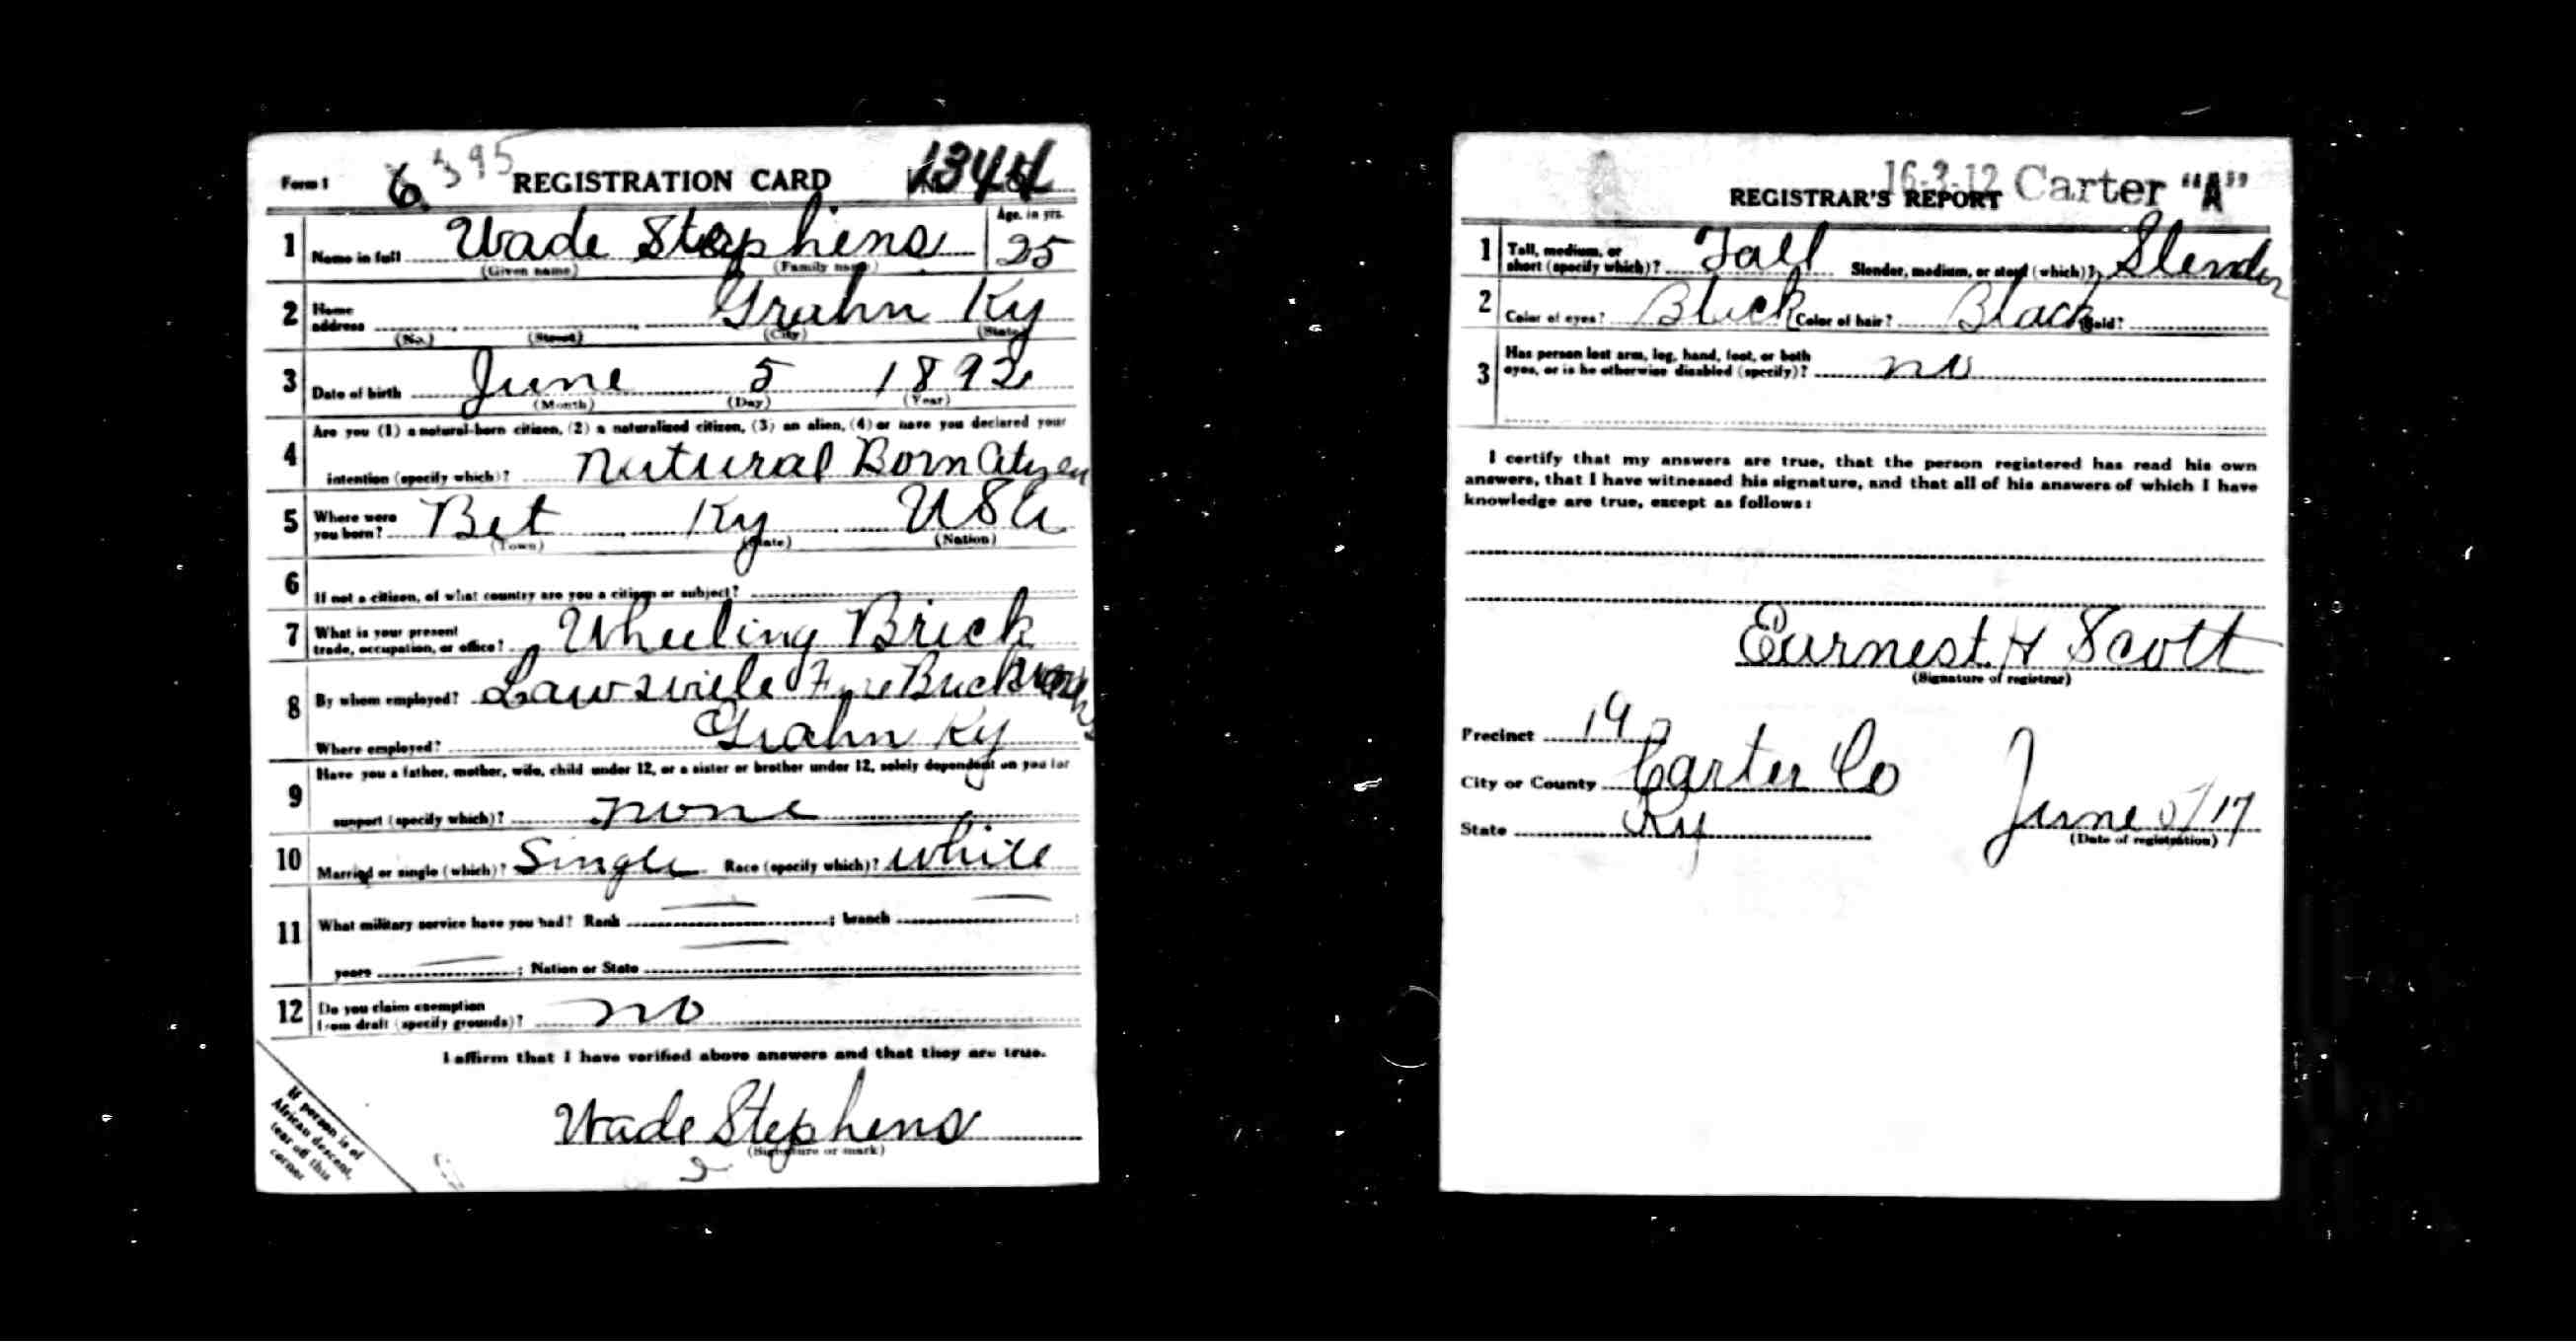 Form 1 6 395 REGISTRATION CARD 1344
1 Name in full Wade Stephens Age, in yrs. 25
(Given name) (Family name)
2 Home address Grahn Ky
(No.) (Street) (City) (State)
3 Date of birth June 5 1892
(Month) (Day) (Year)
4 Are you (1) a natural-born citizen, (2) a naturalized citizen, (3) an alien, (4) or have you declared your
intention (specify which)? Natural Born Citizen
5 Where were you born? Bet Ky USA
(Town) (State) (Nation)
6 If not a citizen, of what country are you a citizen or subject?
7 What is your present trade, occupation, or office? Wheeling Brick
8 By whom employed? Fire Brick works
Where employed? Grahn Ky
9 Have you a father, mother, wife, child under 12, or a sister or brother under 12, solely dependent on you for
support (specify which)? none
10 Married or single (which)? Single Race (specify which)? White
11 What military service have you had? Rank ; branch ;
years ; Nation or State
12 Do you claim exemption from draft (specify grounds)? no
I affirm that I have verified above answers and that they are true.
Wade Stephens
(Signature or mark)
If person is of
African descent,
tear off this
corner
16-3-12 Carter "A"
REGISTRAR'S REPORT
1 Tall, medium, or short (specify which)? Tall Slender, medium, or stout (which)? Slender
2 Color of eyes? Black Color of hair? Black Bald?
3 Has person lost arm, leg, hand, foot, or both
eyes, or is he otherwise disabled (specify)? no
I certify that my answers are true, that the person registered has read his own
answers, that I have witnessed his signature, and that all of his answers of which I have
knowledge are true, except as follows:
Earnest H Scott
(Signature of registrar)
Precinct 19
City or County Carter Co
State Ky June 5/17
(Date of registration)